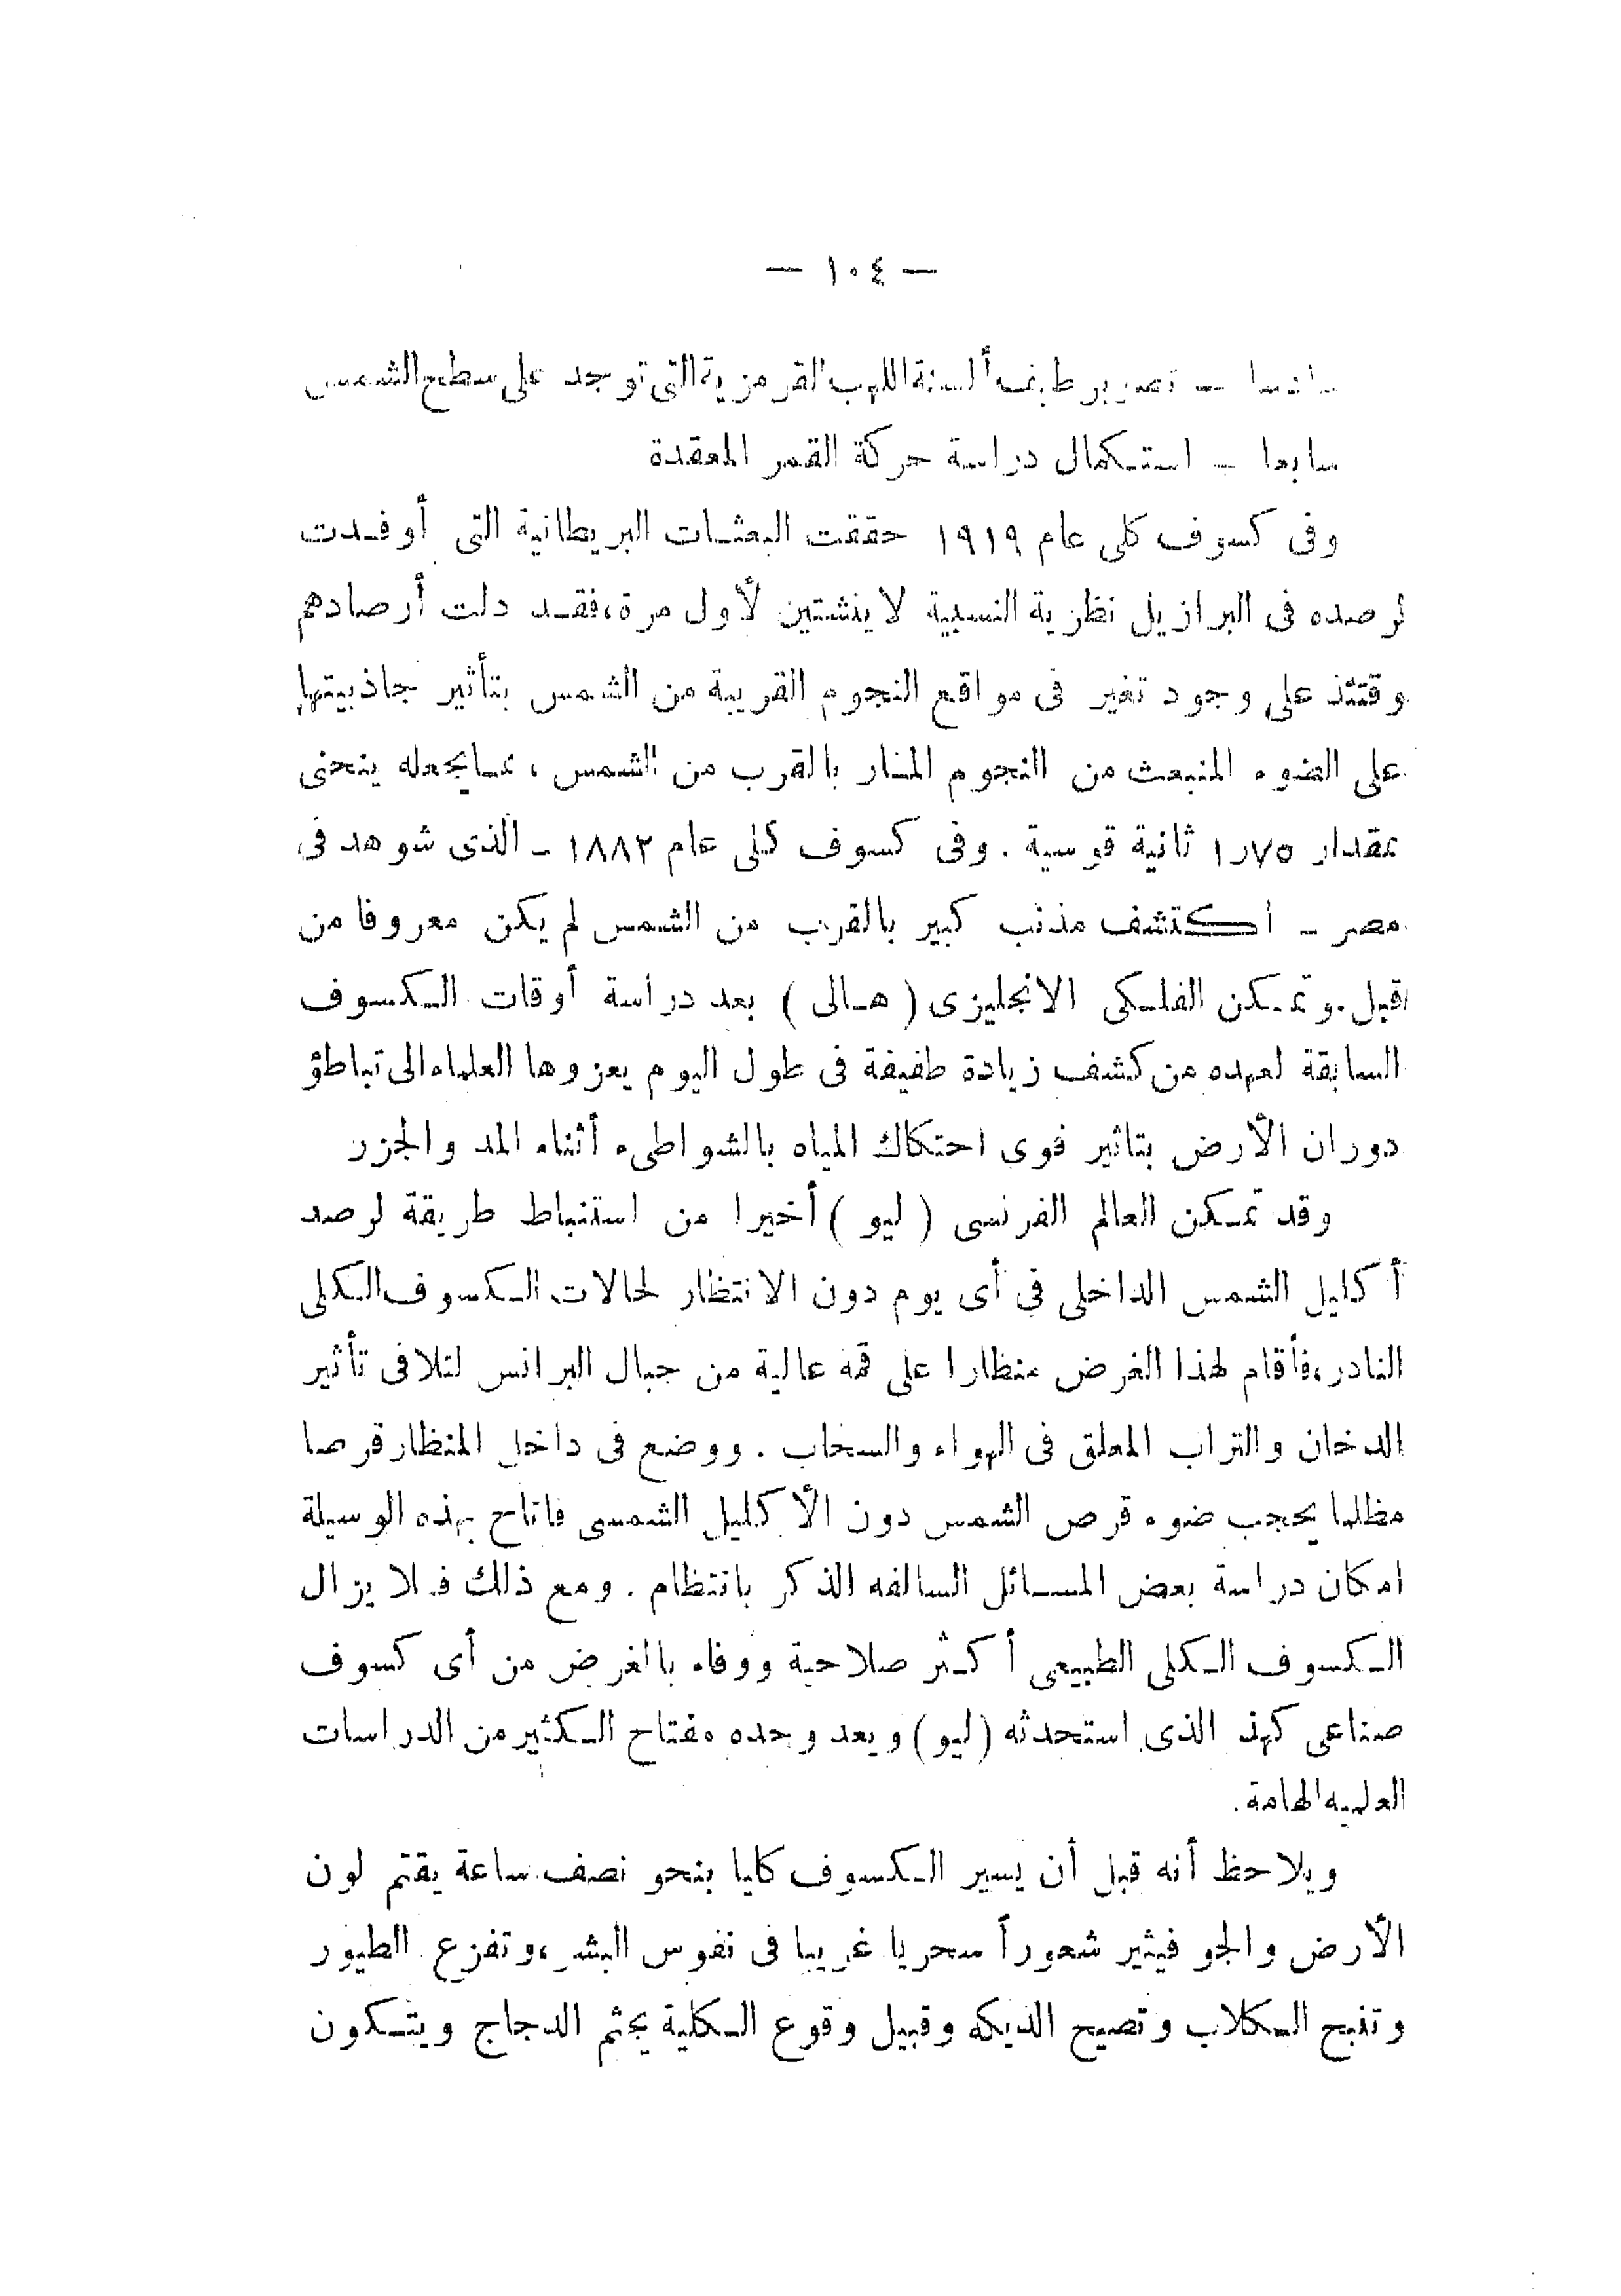 — ١٠٤ —
سادسا — تصوير طيف ألسنة اللهب القرمزية التى توجد على سطح الشمس
سابعا — استكمال دراسة حركة القمر المعقدة
وفى كسوف كلى عام ١٩١٩ حققت البعثات البريطانية التى أوفدت
لرصده فى البرازيل نظرية النسبية لاينشتين لأول مرة، فقد دلت أرصادهم
وقتئذ على وجود تغير فى مواقع النجوم القريبة من الشمس بتأثير جاذبيتها
على الضوء المنبعث من النجوم المار بالقرب من الشمس ، مما يجعله ينحنى
بمقدار ١٫٧٥ ثانية قوسية . وفى كسوف كلى عام ١٨٨٢ ــ الذى شوهد فى
مصر ــ اكتشف مذنب كبير بالقرب من الشمس لم يكن معروفا من
قبل . وتمكن الفلكى الانجليزى ( هالى ) بعد دراسة أوقات الكسوف
السابقة لعهده من كشف زيادة طفيفة فى طول اليوم يعزوها العلماء الى تباطؤ
دوران الأرض بتاثير قوى احتكاك المياه بالشواطىء أثناء المد والجزر
وقد تمكن العالم الفرنسى ( ليو ) أخيرا من استنباط طريقة لرصد
أكليل الشمس الداخلى فى أى يوم دون الانتظار لحالات الكسوف الكلى
النادر، فأقام لهذا الغرض منظارا على قمه عالية من جبال البرانس لتلافى تأثير
الدخان والتراب المعلق فى الهواء والسحاب . ووضع فى داخل المنظار قرصا
مظلما يحجب ضوء قرص الشمس دون الأكليل الشمسى فاتاح بهذه الوسيلة
امكان دراسة بعض المسائل السالفه الذكر بانتظام . ومع ذلك فلا يزال
الكسوف الكلى الطبيعى أكثر صلاحية ووفاء بالغرض من أى كسوف
صناعى كهذ الذى استحدثه (ليو) ويعد وحده مفتاح الكثير من الدراسات
العلميه الهامة.
ويلاحظ أنه قبل أن يسير الكسوف كليا بنحو نصف ساعة يقتم لون
الأرض والجو فيثير شعوراً سحريا غريبا فى نفوس البشر ، وتفزع الطيور
وتنبح الكلاب وتصيح الديكه وقبيل وقوع الكلية يجثم الدجاج ويتكون